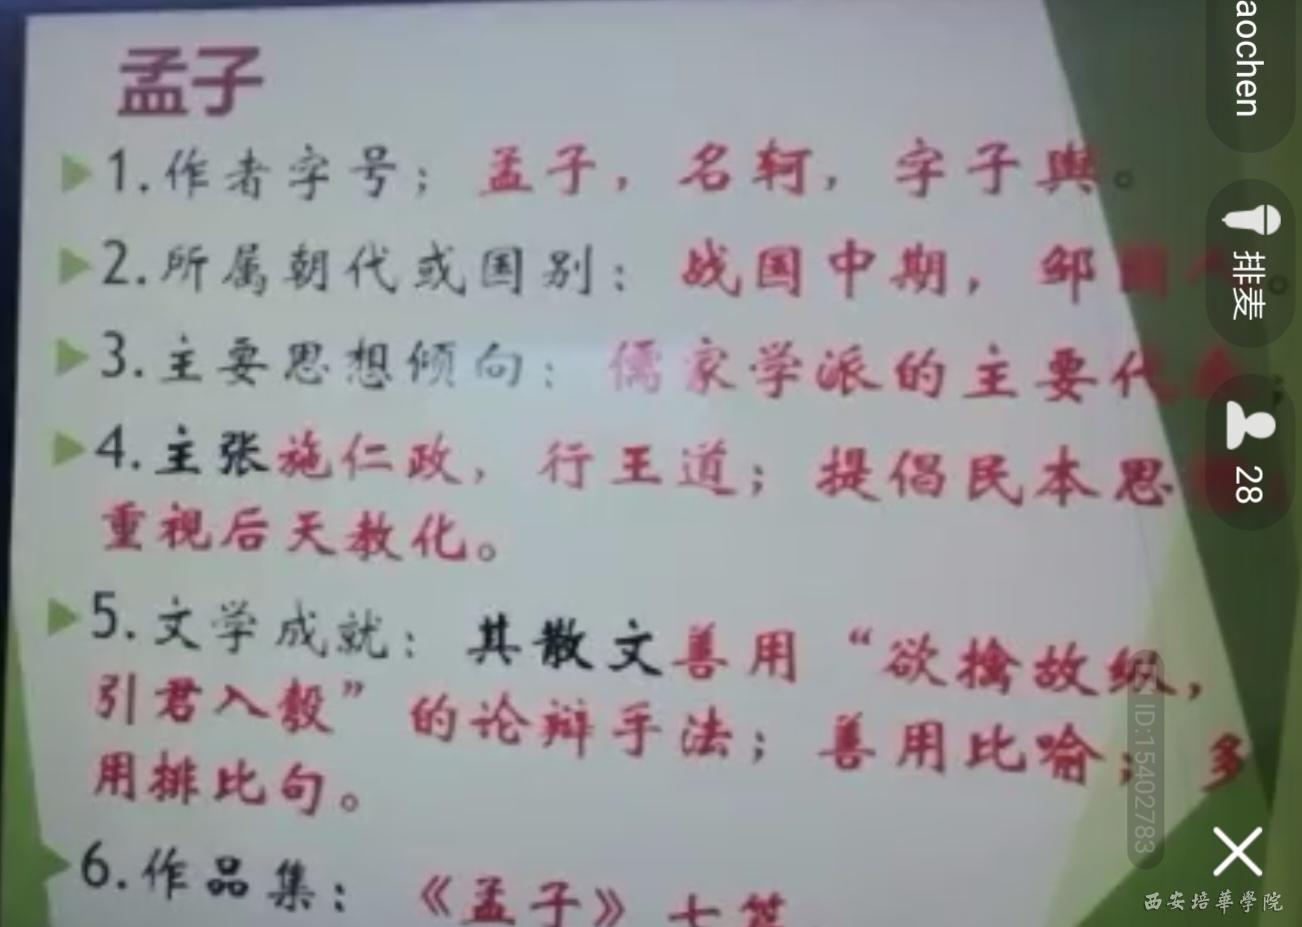 孟子
1.作者字号；孟子，名轲，字子舆。
2.所属朝代或国别：战国中期，邹国人。
3.主要思想倾向：儒家学派的主要代表；
4.主张施仁政，行王道；提倡民本思
重视后天教化。
5.文学成就：其散文善用“欲擒故纵，
引君入彀”的论辩手法；善用比喻；多
用排比句。
6.作品集：《孟子》七篇
aochen
排麦
28
ID:15402783
西安培華學院